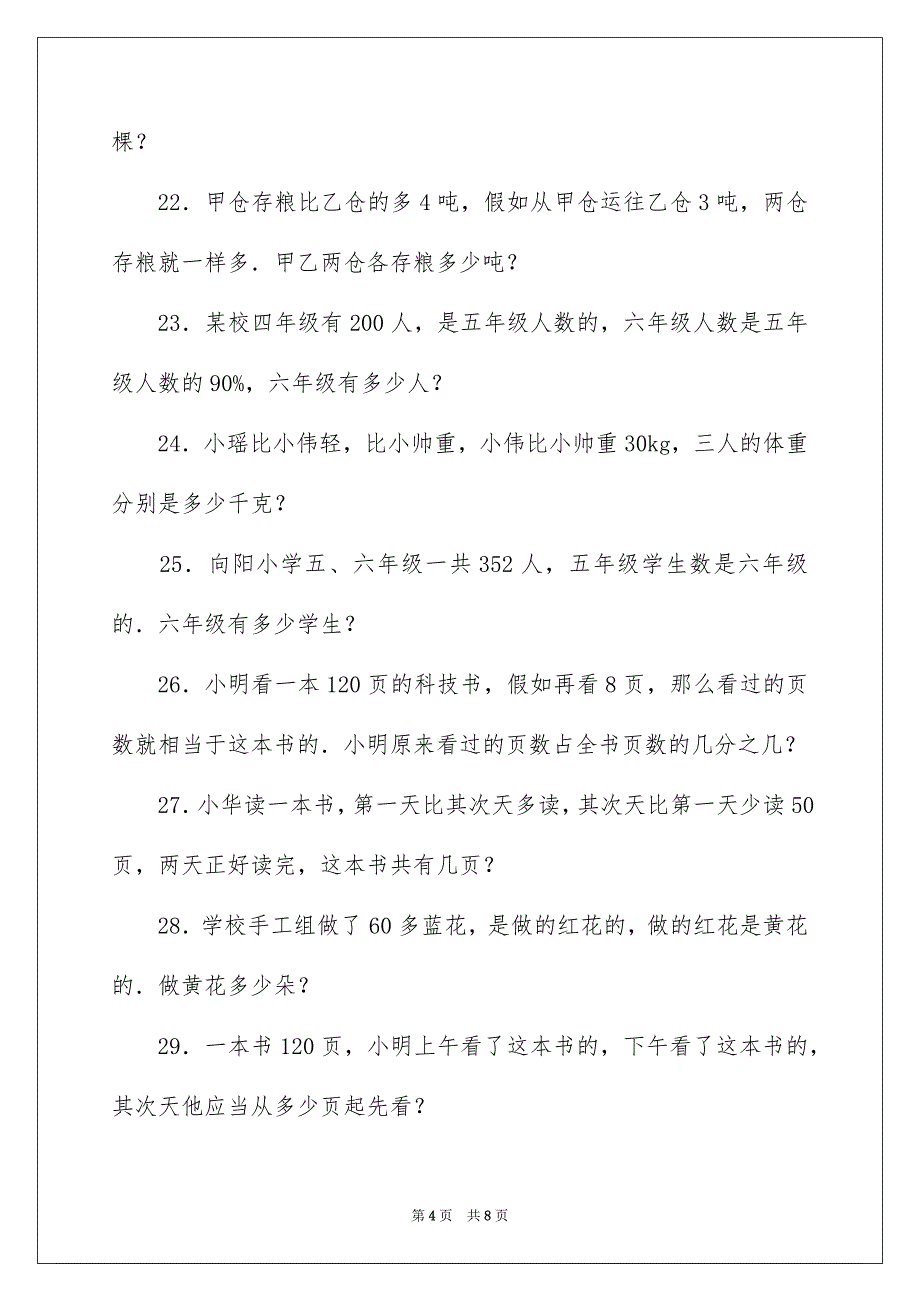 棵?
22．甲仓存粮比乙仓的多 4 吨，假如从甲仓运往乙仓 3 吨，两仓
存粮就一样多．甲乙两仓各存粮多少吨?
23．某校四年级有 200 人，是五年级人数的，六年级人数是五年
级人数的 90%，六年级有多少人?
24．小瑶比小伟轻，比小帅重，小伟比小帅重 30kg，三人的体重
分别是多少千克?
25．向阳小学五、六年级一共 352 人，五年级学生数是六年级
的．六年级有多少学生?
26．小明看一本 120 页的科技书，假如再看 8 页，那么看过的页
数就相当于这本书的．小明原来看过的页数占全书页数的几分之几?
27．小华读一本书，第一天比其次天多读，其次天比第一天少读 50
页，两天正好读完，这本书共有几页?
28．学校手工组做了 60 多蓝花，是做的红花的，做的红花是黄花
的．做黄花多少朵?
29．一本书 120 页，小明上午看了这本书的，下午看了这本书的，
其次天他应当从多少页起先看?
第 4 页 共 8 页